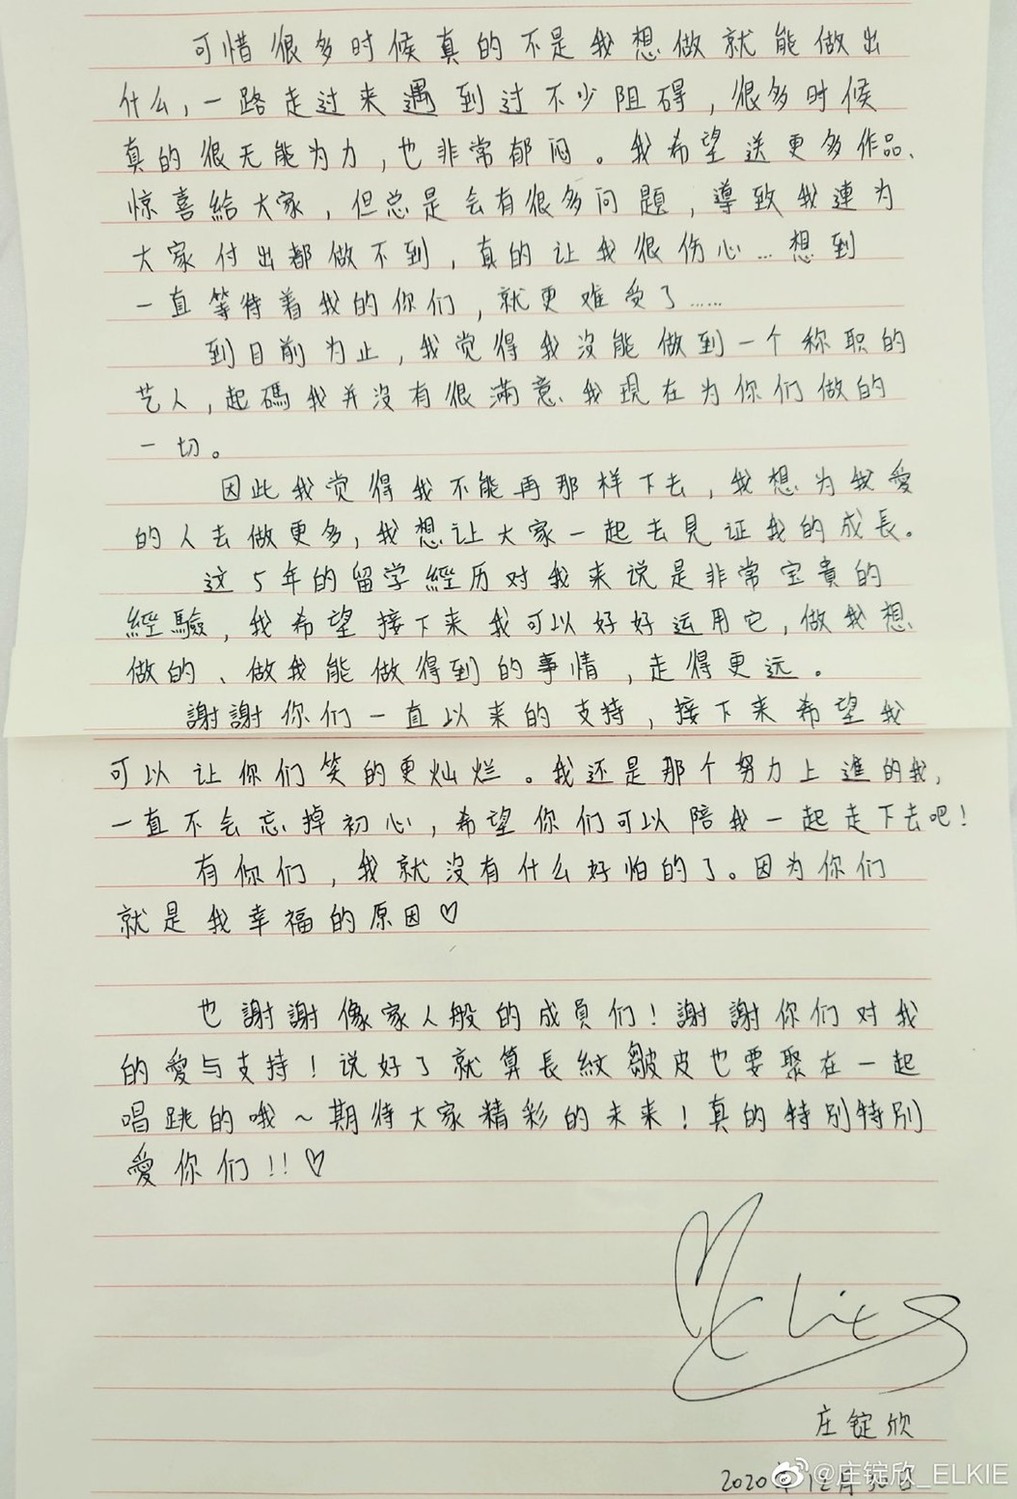 可惜很多时候真的不是我想做就能做出
什么,一路走过来遇到过不少阻碍,很多时候
真的很无能为力,也非常郁闷。我希望送更多作品、
惊喜給大家,但总是会有很多问題,導致我連为
大家付出都做不到,真的让我很伤心...想到
一直等待着我的你们,就更难受了……
到目前为止,我觉得我没能做到一个称职的
艺人,起碼我并没有很滿意、我現在为你们做的
一切。
因此我觉得我不能再那样下去,我想为我愛
的人去做更多,我想让大家一起去見证我的成長。
这5年的留学經历对我来说是非常宝貴的
經驗,我希望接下来我可以好好运用它,做我想
做的、做我能做得到的事情,走得更远。
謝謝你们一直以来的支持,接下来希望我
可以让你们笑的更灿烂。我还是那个努力上進的我,
一直不会忘掉初心,希望你们可以陪我一起走下去吧!
有你们,我就没有什么好怕的了。因为你们
就是我幸福的原因♡
也謝謝像家人般的成員们!謝謝你们对我
的愛与支持!说好了就算長紋皺皮也要聚在一起
唱跳的哦~期待大家精彩的未来!真的特别特别
愛你们!!♡
Elkie
庄锭欣
2020年12月30日
@庄锭欣_ELKIE